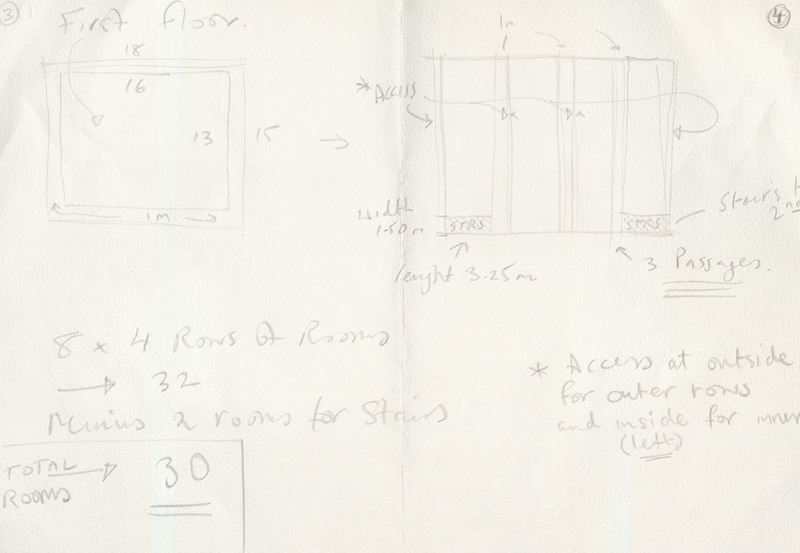 3
First Floor.
18
16
13
15
1m
4
1m
* Access
Width
1.50m
STRS
STRS
Stairs t
2n
lenght 3.25m
3 Passages.
8 x 4 Rows of Rooms
→ 32
Minus 2 rooms for Stairs
TOTAL → 30
ROOMS
* Access at outside
for outer rows
and inside for inner
(left)